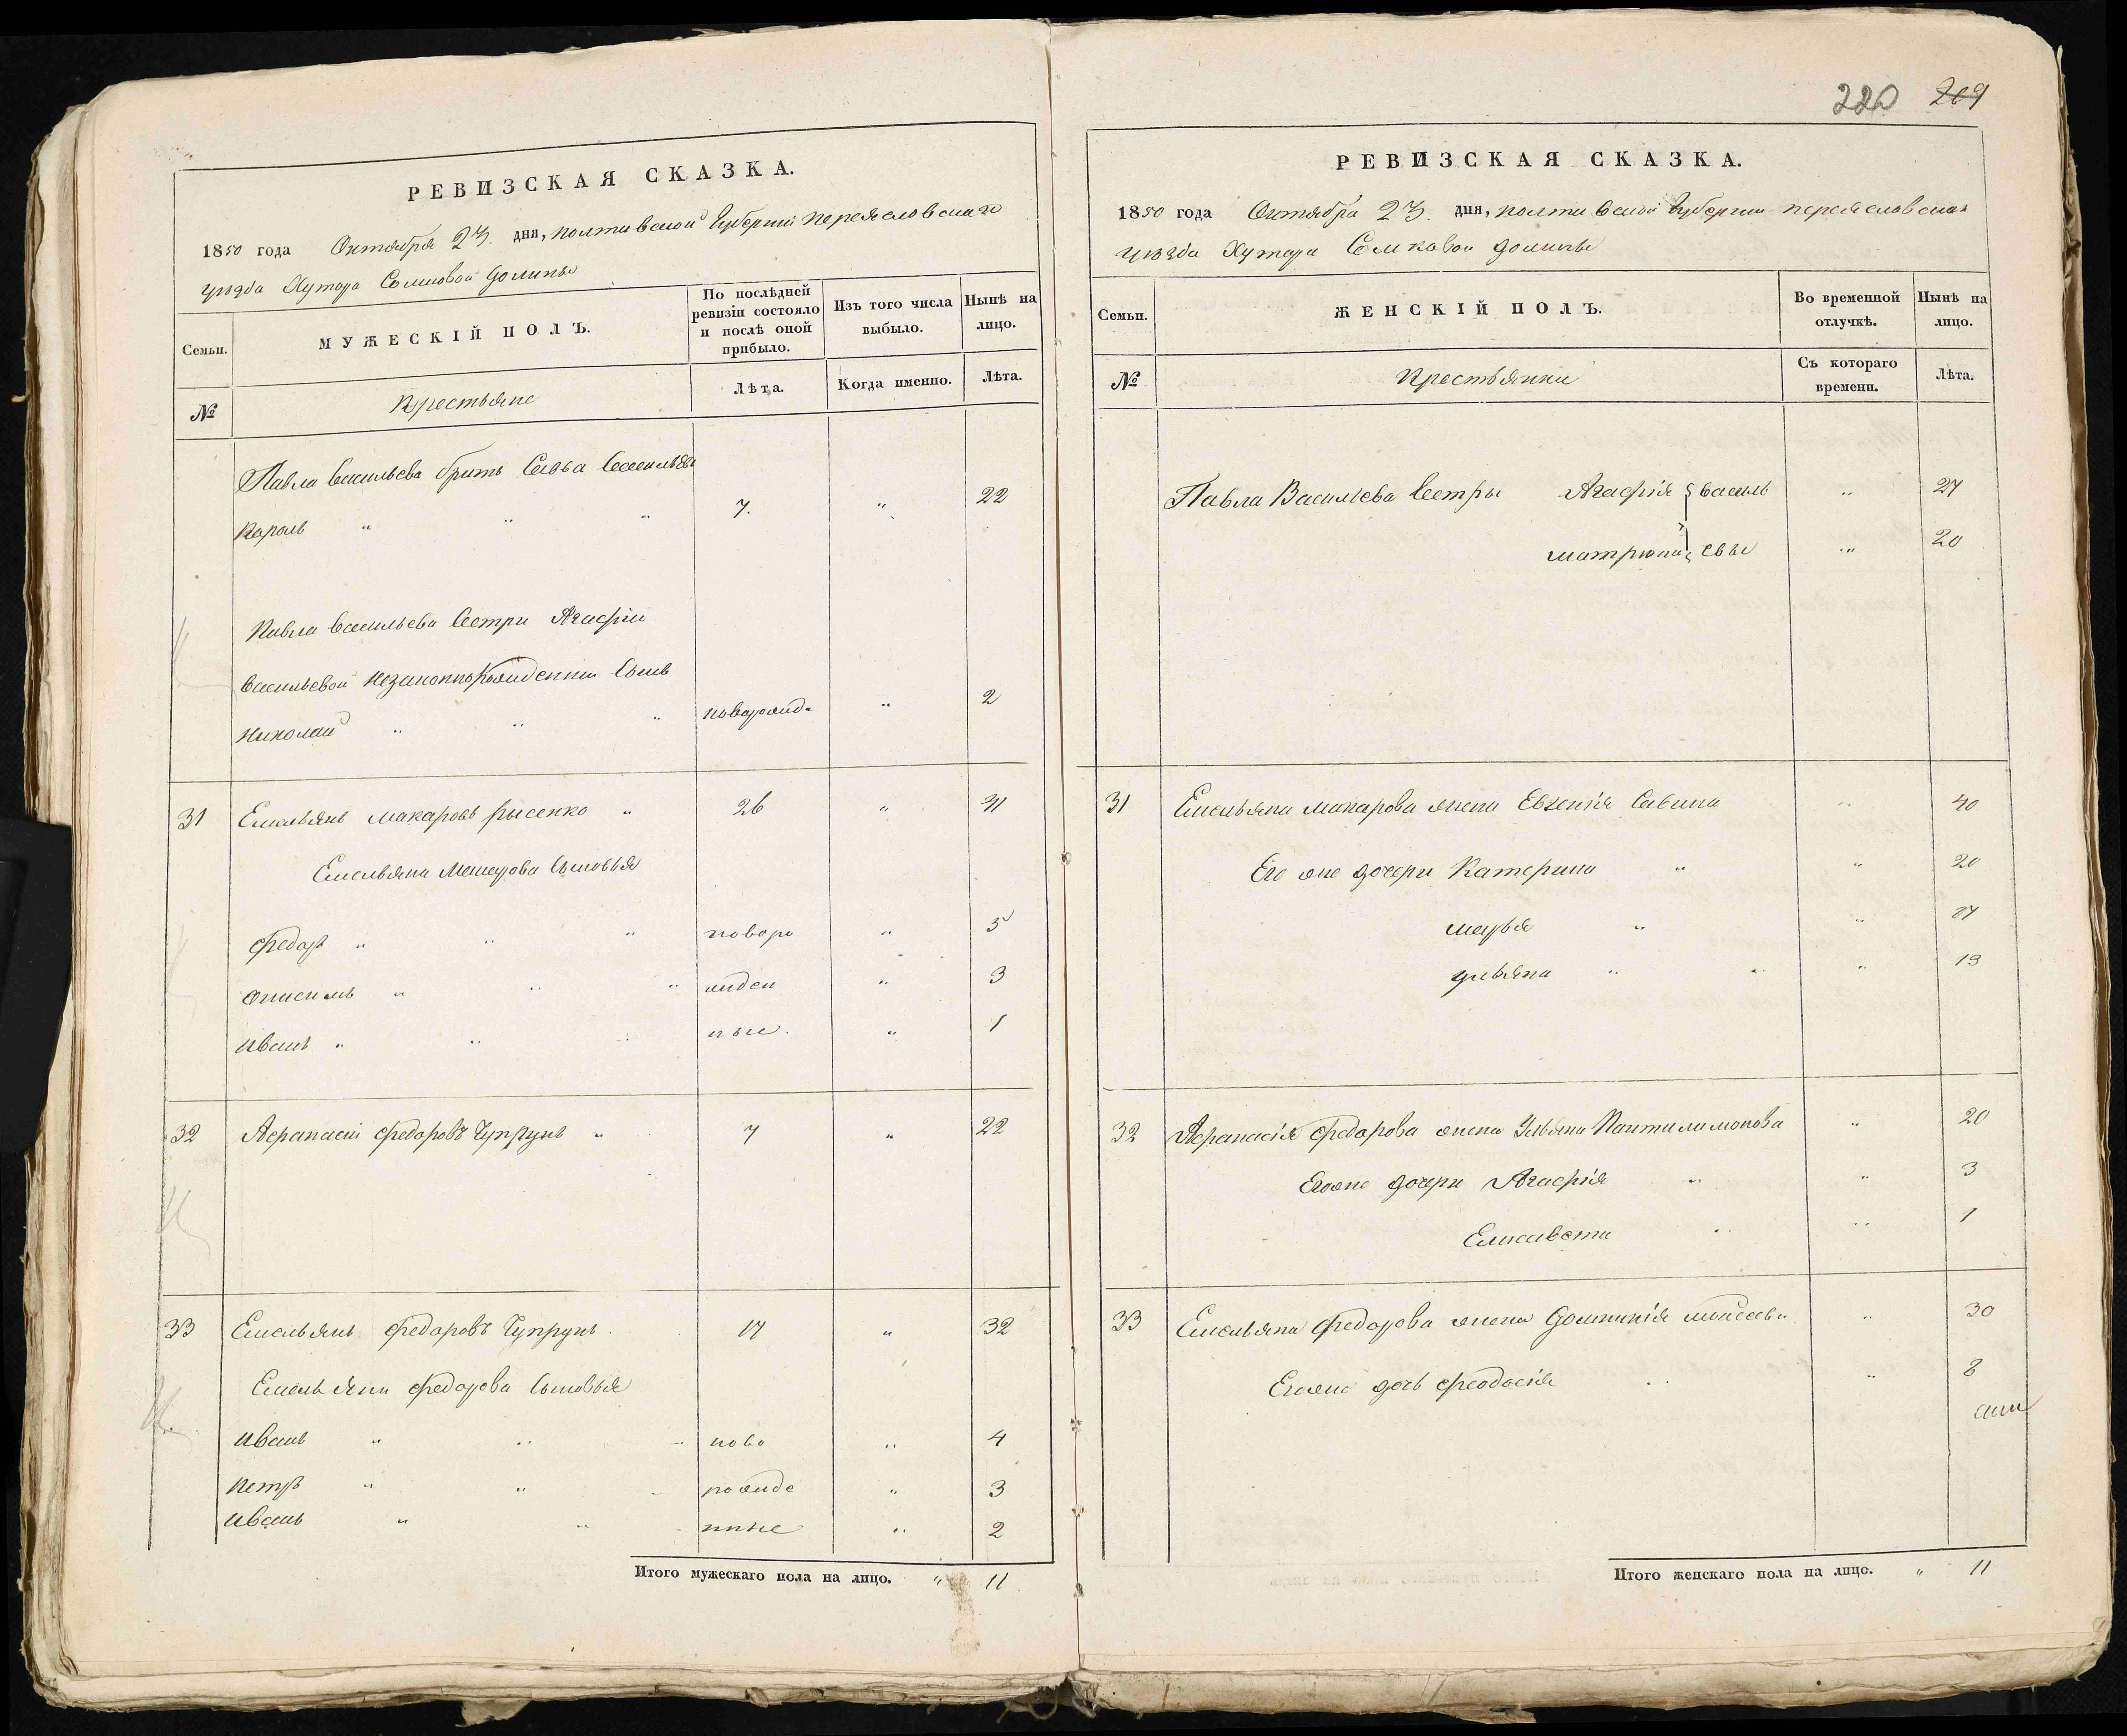 220 209
РЕВИЗСКАЯ СКАЗКА.
1850 года Октября 23. дня, полтавской Губерніи переяславскаго
уѣзда Хутора Семковой долины
Семьи.
МУЖЕСКІЙ ПОЛЪ.
По послѣдней ревизіи состояло и послѣ оной прибыло.
Изъ того числа выбыло.
Нынѣ на лицо.
№
Крестьяне
Лѣта.
Когда именно.
Лѣта.
Павла васильева братъ Савва Васильевъ
Король " " " 7. " 22
Павла васильева Сестри Агафіи
васильевой незаконнорожденни Сынъ
николай " " " новорожд. " 2
31 Емельянъ макаровъ рысенко " 26 " 41
Емельяна Макарова Сыновья
федоръ " " " новоро " 5
Онисимъ " " " жден " 3
иванъ " " " ные. " 1
32 Афанасій федоровъ Чупрунъ " 7 " 22
33 Емельянъ федоровъ Чупрунъ. 17 " 32
Емельяна федорова Сыновья
иванъ " " " ново " 4
петръ " " рожде " 3
иванъ " " нные " 2
Итого мужескаго пола на лицо. " 11
РЕВИЗСКАЯ СКАЗКА.
1850 года Октября 23. дня, полтавской губерніи переяславскаго
уѣзда Хутора Семковой долины
Семьи.
ЖЕНСКІЙ ПОЛЪ.
Во временной отлучкѣ.
Нынѣ на лицо.
№
Крестьянки
Съ котораго времени.
Лѣта.
Павла Васильева Сестры Агафія василь " 27
матрюна евы " 20
31 Емельяна макарова жена Евгенія Савина " 40
Его же дочери Катерина " " 20
марья " "
ульяна " " " 13
32 Афанасія федорова жена Ульяна Пантилимонова " 20
Егоже дочери Агафія " " 3
Елисавета " " 1
33 Емельяна федорова жена Домникія " 30
Егоже дочь феодосія " 8
Итого женскаго пола на лицо. " 11